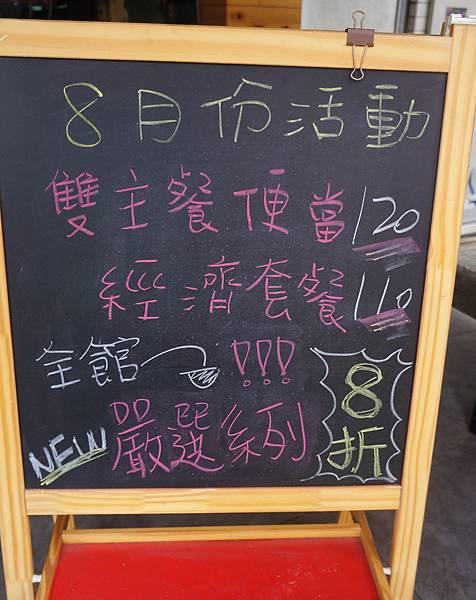 8月份活動
雙主餐便當120
經濟套餐110
全館!!!
NEW嚴選系列
8折